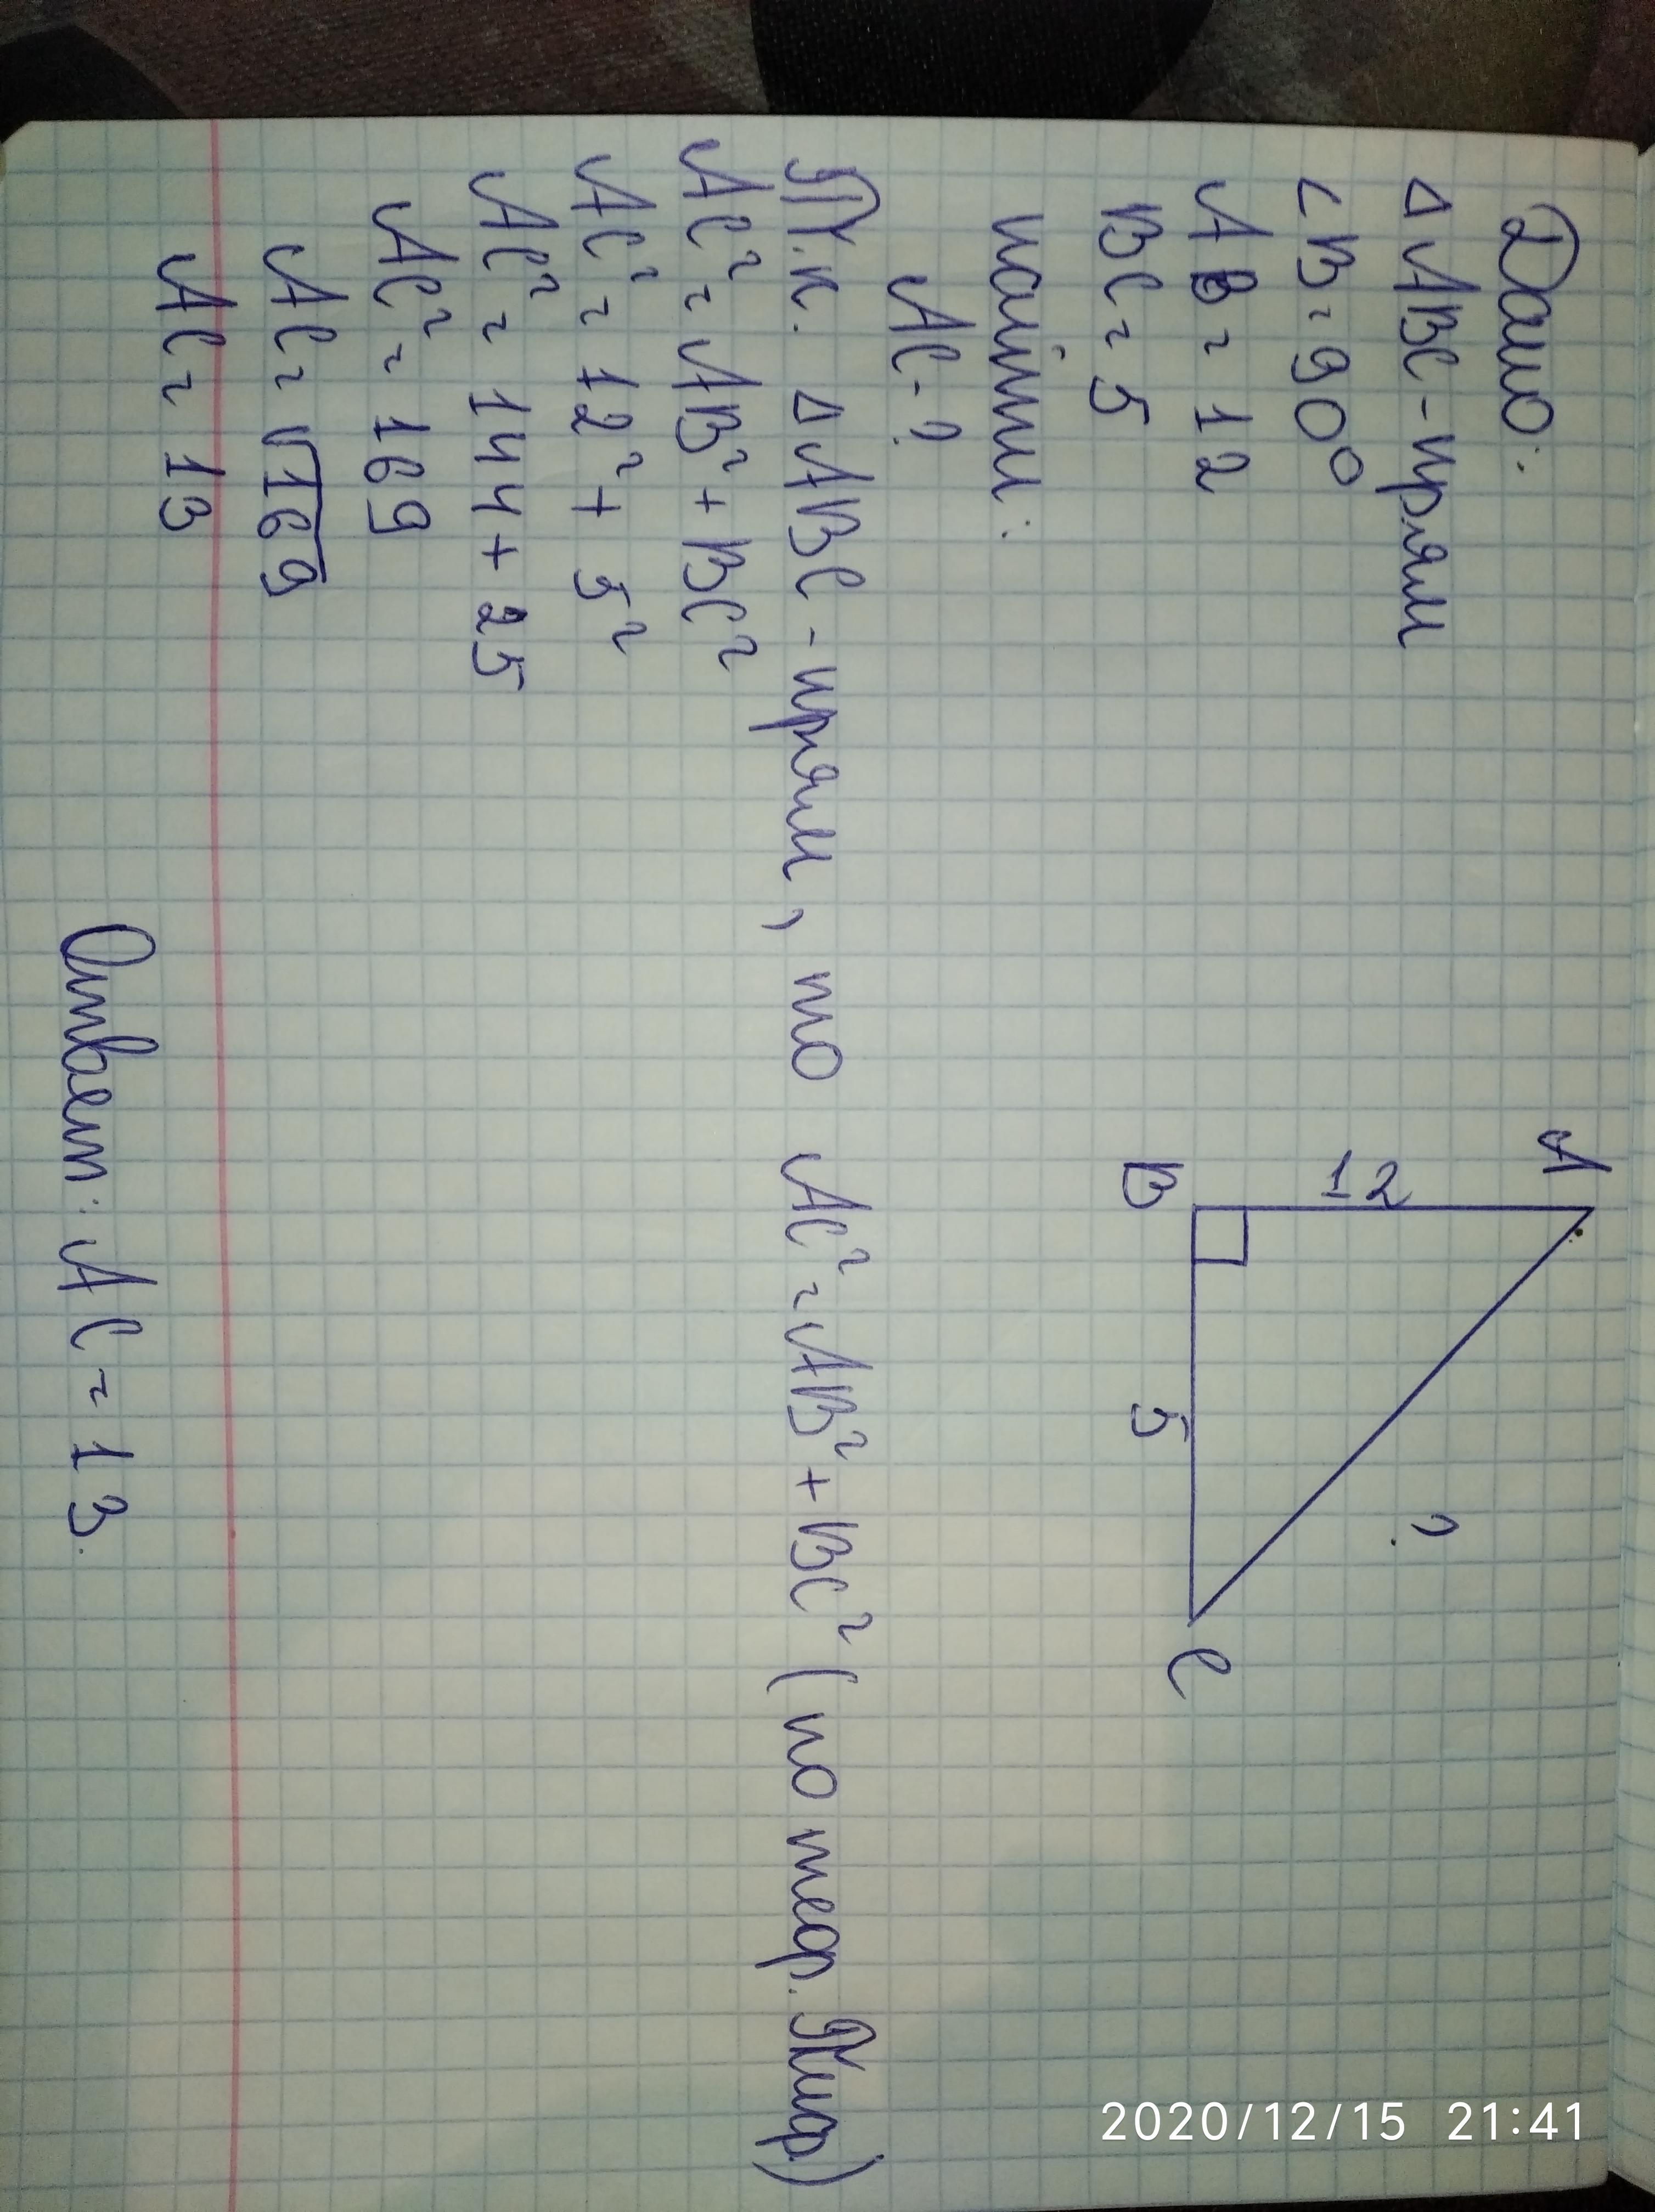 Дано:
△ABC - прям
∠B = 90°
AB = 12
BC = 5
найти:
AC - ?
A
12
B
5
C
?
Т.к. △ABC - прям, то AC² = AB² + BC² (по теор. Пифр)
AC² = AB² + BC²
AC² = 12² + 5²
AC² = 144 + 25
AC² = 169
AC = √169
AC = 13
Ответ: AC = 13.
2020/12/15 21:41